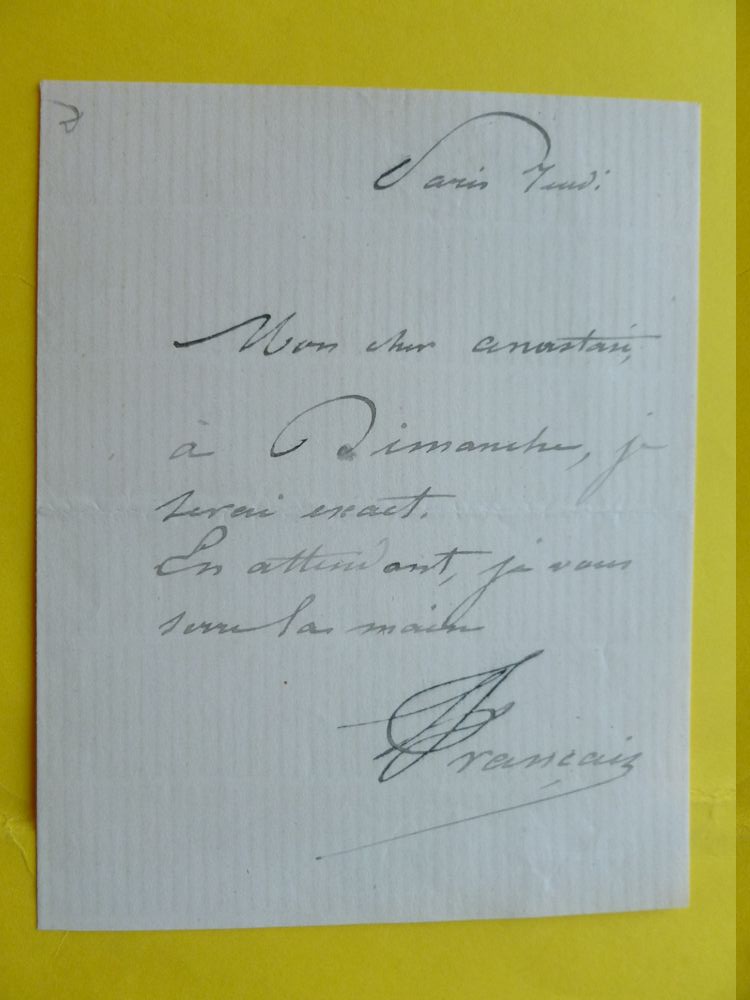 Paris Jeudi
Mon cher anastasi,
à Dimanche, je
serai exact.
En attendant, je vous
serre la main
Français